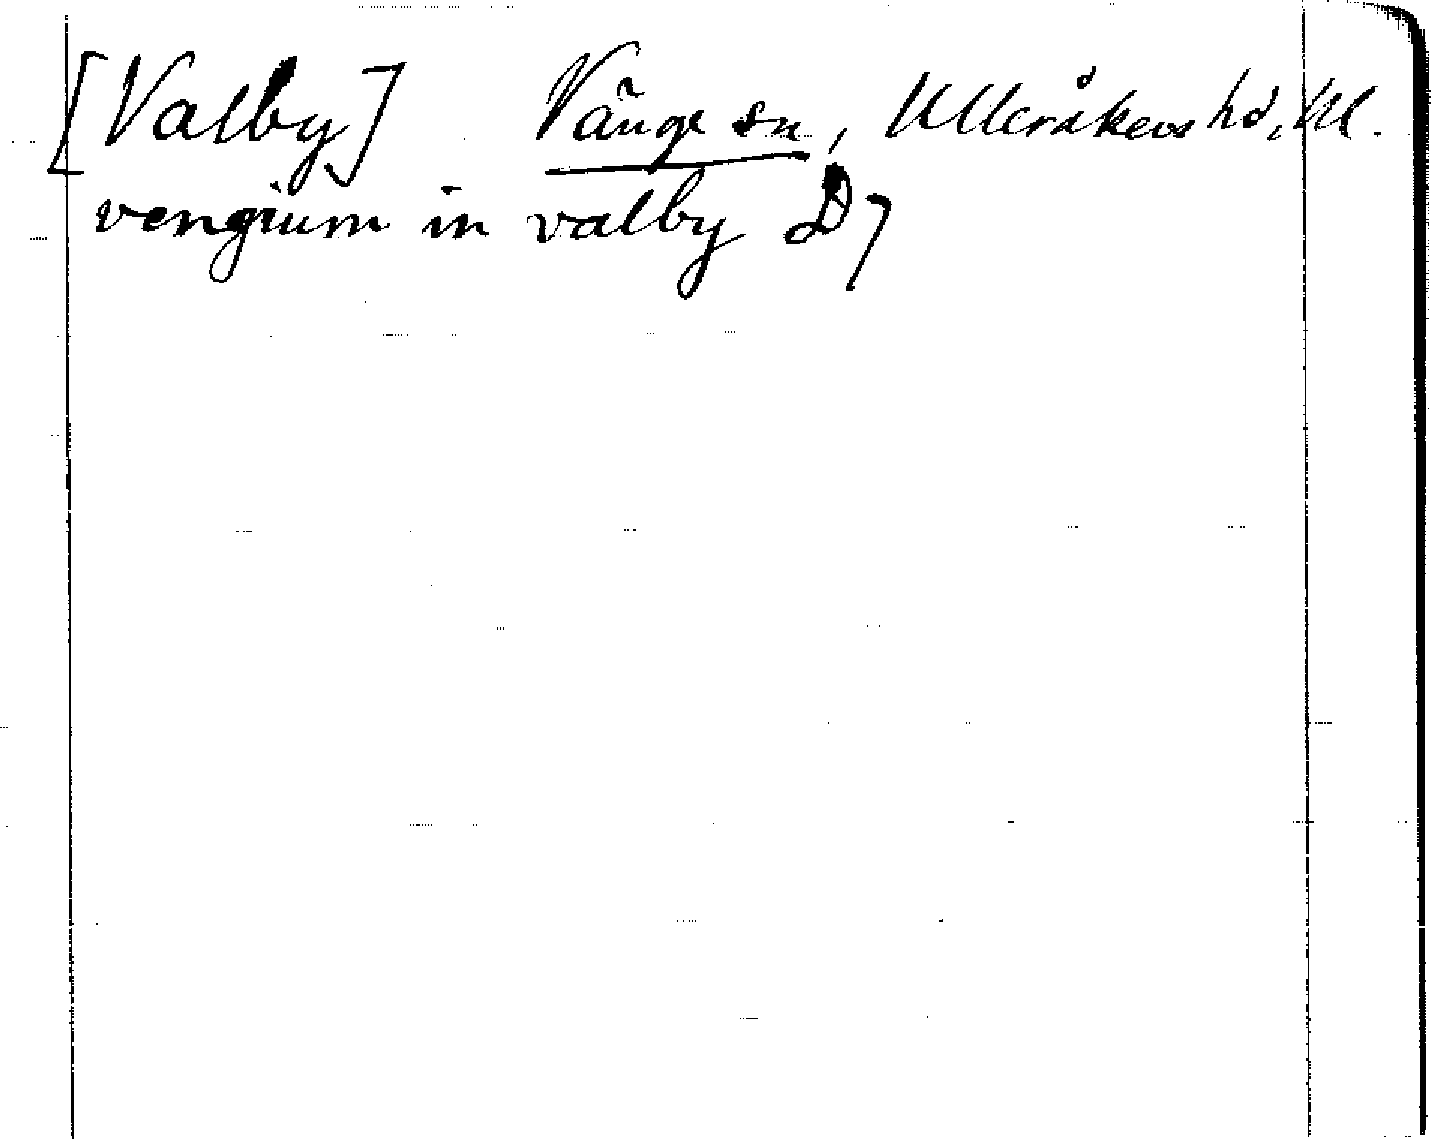 [Valby] Vänge sn, Ulleråkers hd, Ul.
vengium in valby D7